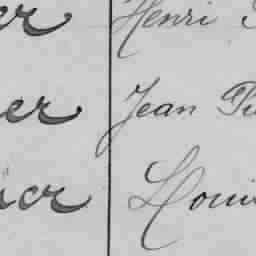 er Henri
er Jean
ier Loui